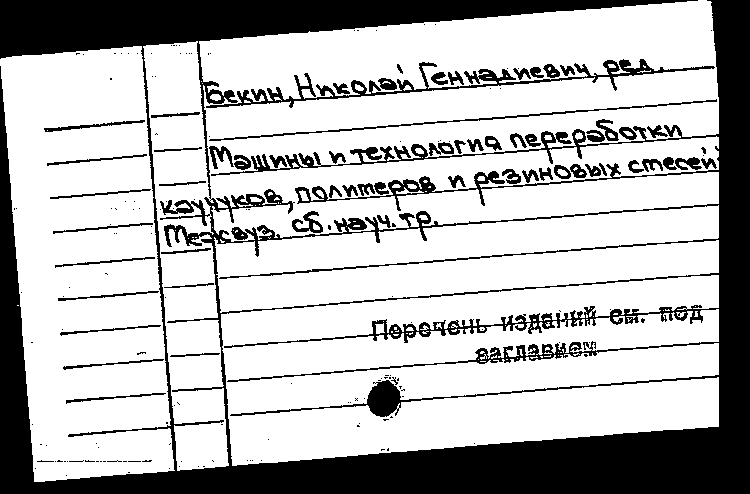 Бекин, Николай Геннадиевич, ред.
Машины и технология переработки
каучуков, полимеров и резиновых смесей:
Межвуз. сб. науч. тр.
Перечень изданий см. под
заглавием